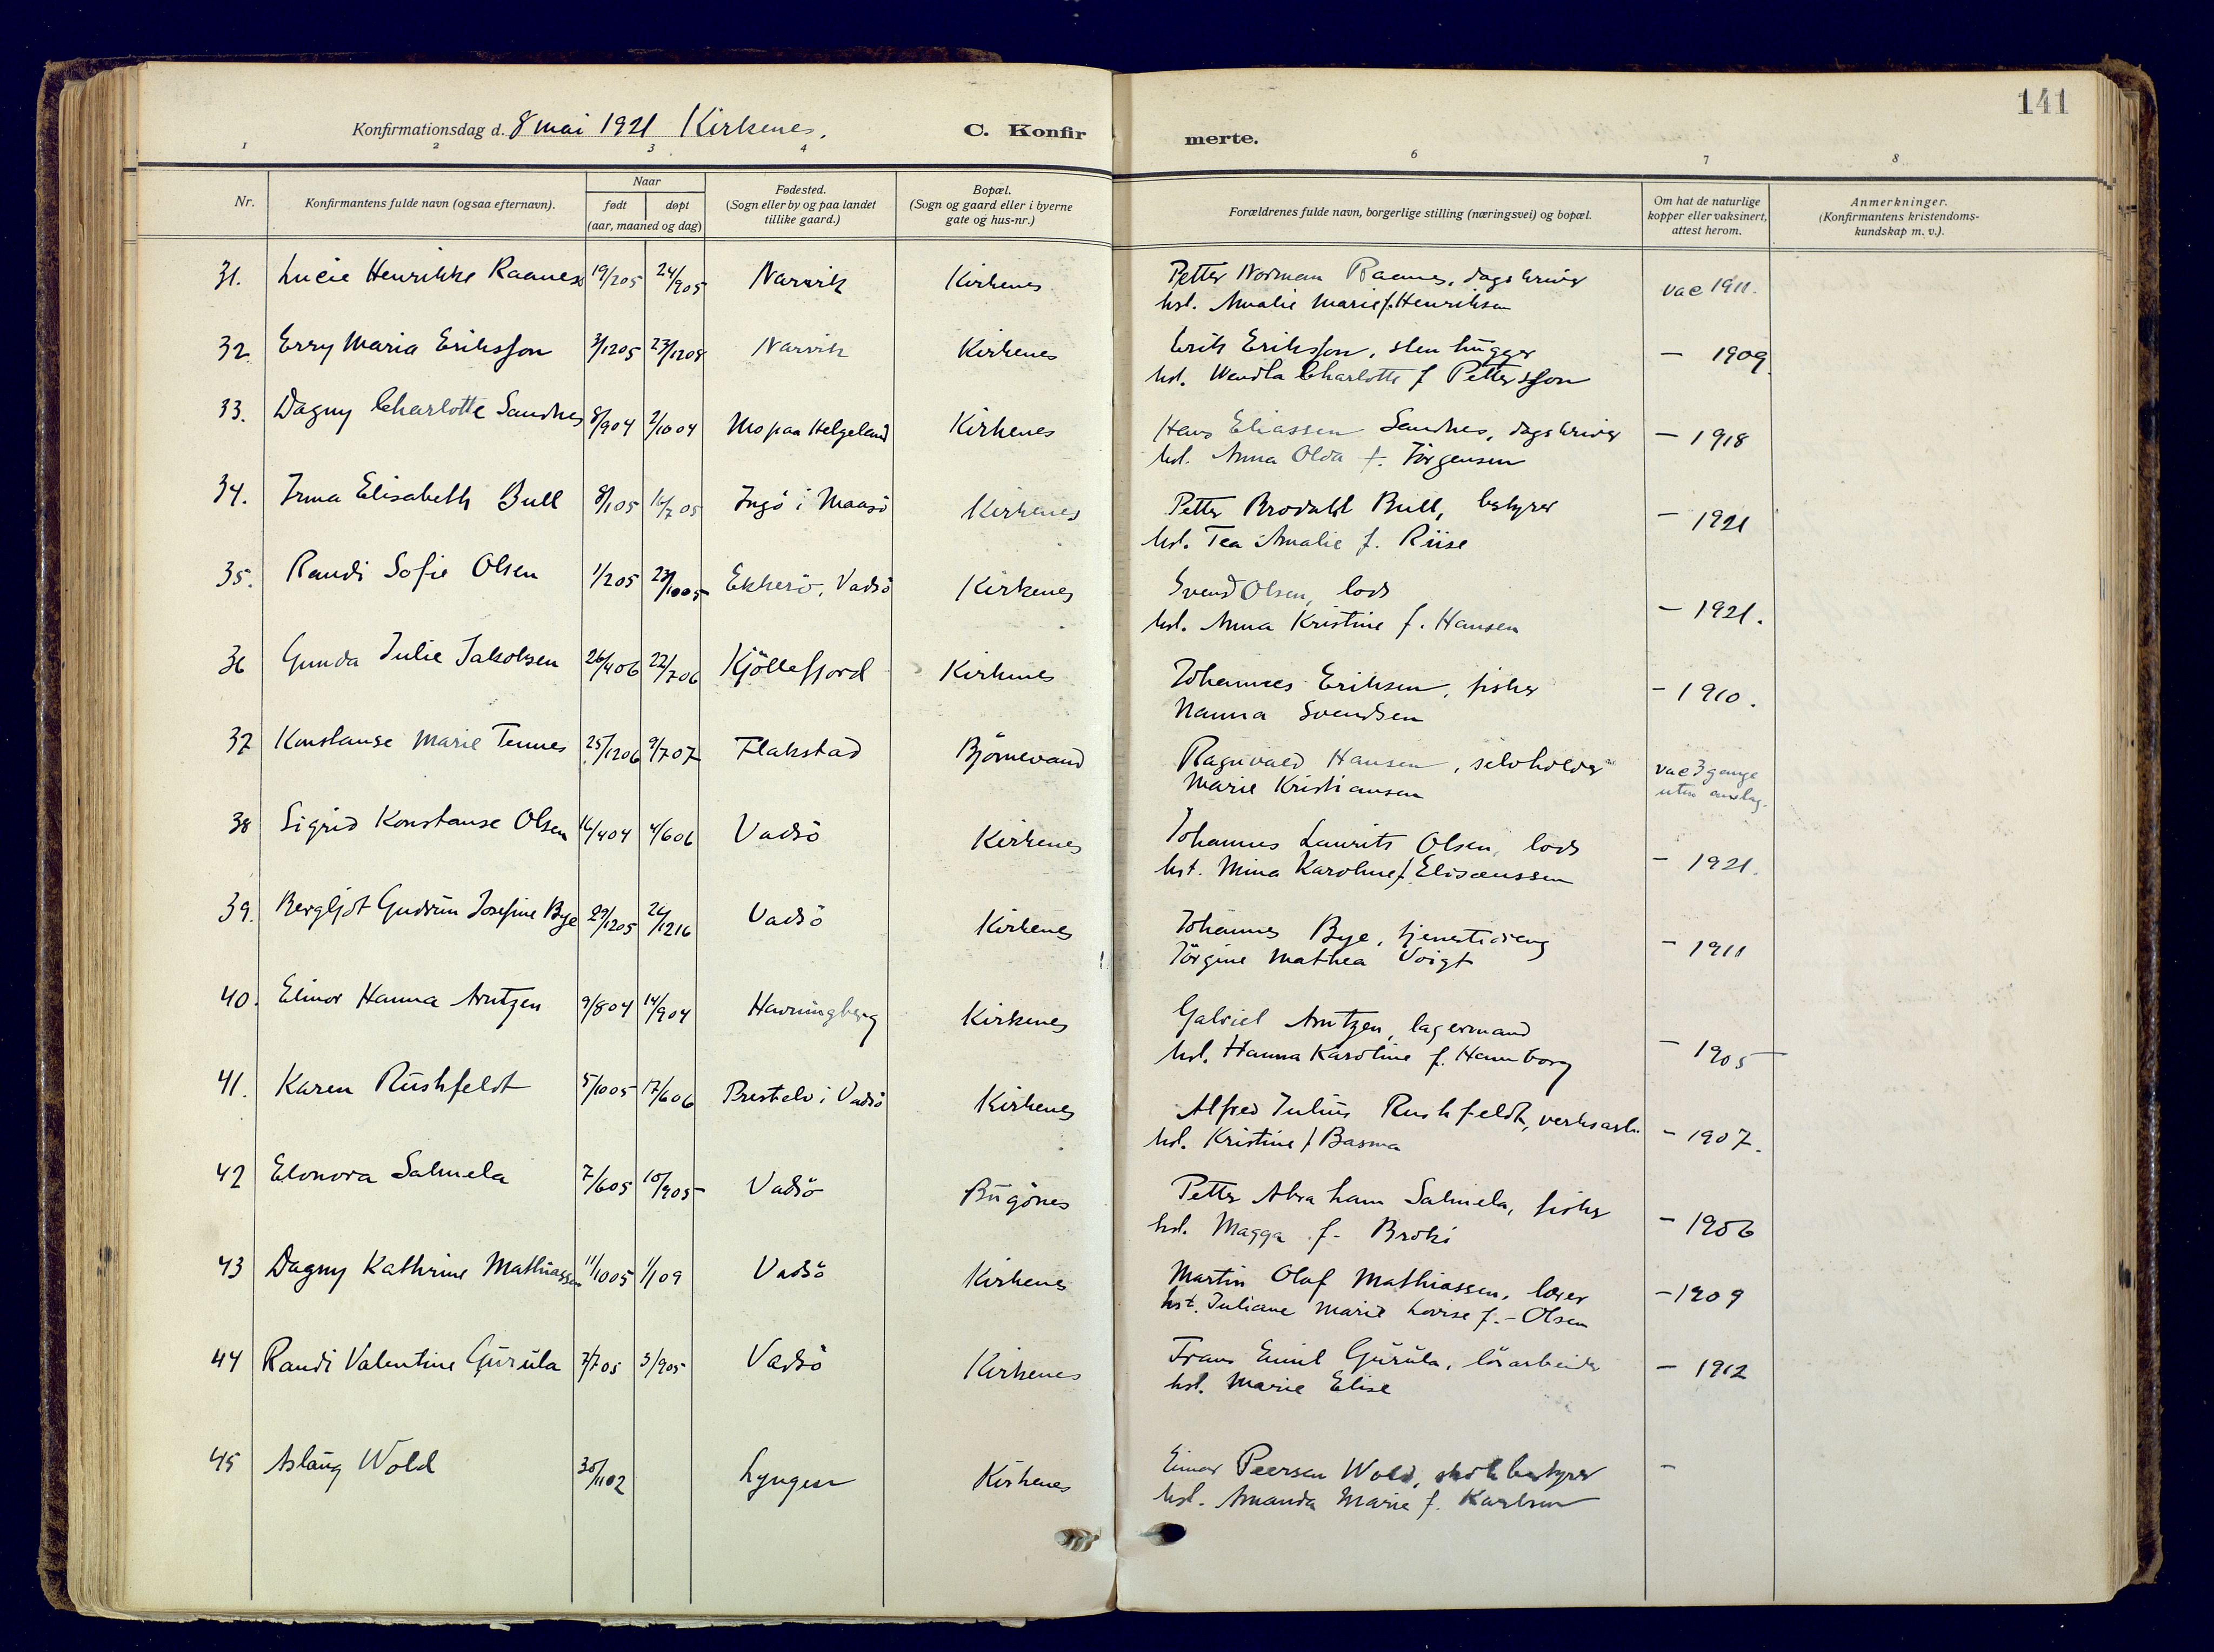 141
Konfirmationsdag d. 8 mai 1921 Kirkenes.
C. Konfirmerte.
1 2 3 4 6 7 8
Nr. Konfirmantens fulde navn (ogsaa efternavn). Naar født døpt (aar, maaned og dag) Fødested. (Sogn eller by og paa landet tillike gaard.) Bopæl. (Sogn og gaard eller i byerne gate og hus-nr.) Forældrenes fulde navn, borgerlige stilling (næringsvei) og bopæl. Om hat de naturlige kopper eller vaksinert, attest herom. Anmerkninger. (Konfirmantens kristendoms-kundskap m. v.).
31. Lucie Henrikke Raanes 19/2 05 24/9 05 Narvik Kirkenes Petter Norman Raanes, dagskriver vac 1911.
hst. Amalie Marie f. Henriksen
32. Erry Maria Eriksson 3/12 05 23/12 05 Narvik Kirkenes Erik Eriksson, stenhugger — 1909.
hst. Wendla Charlotte f Pettersson
33. Dagny Charlotte Sandnes 8/9 04 2/10 04 Mo paa Helgeland Kirkenes Hans Eliassen Sandnes, dagskriver — 1918
hst. Anna Olda f. Jörgensen
34. Irma Elisabeth Bull 8/1 05 16/7 05 Ingö i Maasö Kirkenes Petter Brodahl Bull, bestyrer — 1921
hst. Tea Amalie f. Riise
35. Randi Sofie Olsen 1/2 05 23/10 05 Ekkerö, Vadsö Kirkenes Svend Olsen, lods — 1921.
hst. Anna Kristine f. Hansen
36 Gunda Julie Jakobsen 26/4 06 22/7 06 Kjöllefjord Kirkenes Johannes Eriksen, fisker — 1910.
Nanna Svendsen
37 Konstanse Marie Tennes 25/12 06 9/7 07 Flakstad Björnevand Ragnvald Hansen, selvholder vac 3 gange
Marie Kristiansen uten anslag.
38 Sigrid Konstanse Olsen 16/4 04 4/6 06 Vadsö Kirkenes Johannes Laurits Olsen, lods — 1921.
hst. Mina Karoline f. Eliseussen
39. Bergljot Gudrun Josefine Bye 29/12 05 26/12 16 Vadsö Kirkenes Johannes Bye, tjenestedreng — 1911
Jörgine Mathea Voigt
40. Elinor Hanna Arntzen 9/8 04 14/9 04 Havningberg Kirkenes Gabriel Arntzen, lagermand — 1905 —
hst. Hanna Karoline f. Hamborg
41. Karen Rushfeldt 5/10 05 17/6 06 Prestelv i Vadsö Kirkenes Alfred Julius Rushfeldt, verksarb. — 1907.
hst. Kristine f Basma
42 Elonora Salmela 7/6 05 10/9 05 Vadsö Bugönes Petter Abraham Salmela, fisker — 1906
hst. Magga f. Broki
43 Dagny Kathrine Mathiassen 11/10 05 1/1 09 Vadsö Kirkenes Martin Olaf Mathiassen, lærer — 1909
hst. Juliane Marie Lovise f. - Olsen
44 Randi Valentine Gurula 7/7 05 3/9 05 Vadsö Kirkenes Frans Emil Gurula, lösarbeider — 1912
hst. Marie Elise
45 Aslaug Wold 30/11 02 Lyngen Kirkenes Einar Peersen Wold, bestyrer —
hst. Amanda Marie f. Karlsen